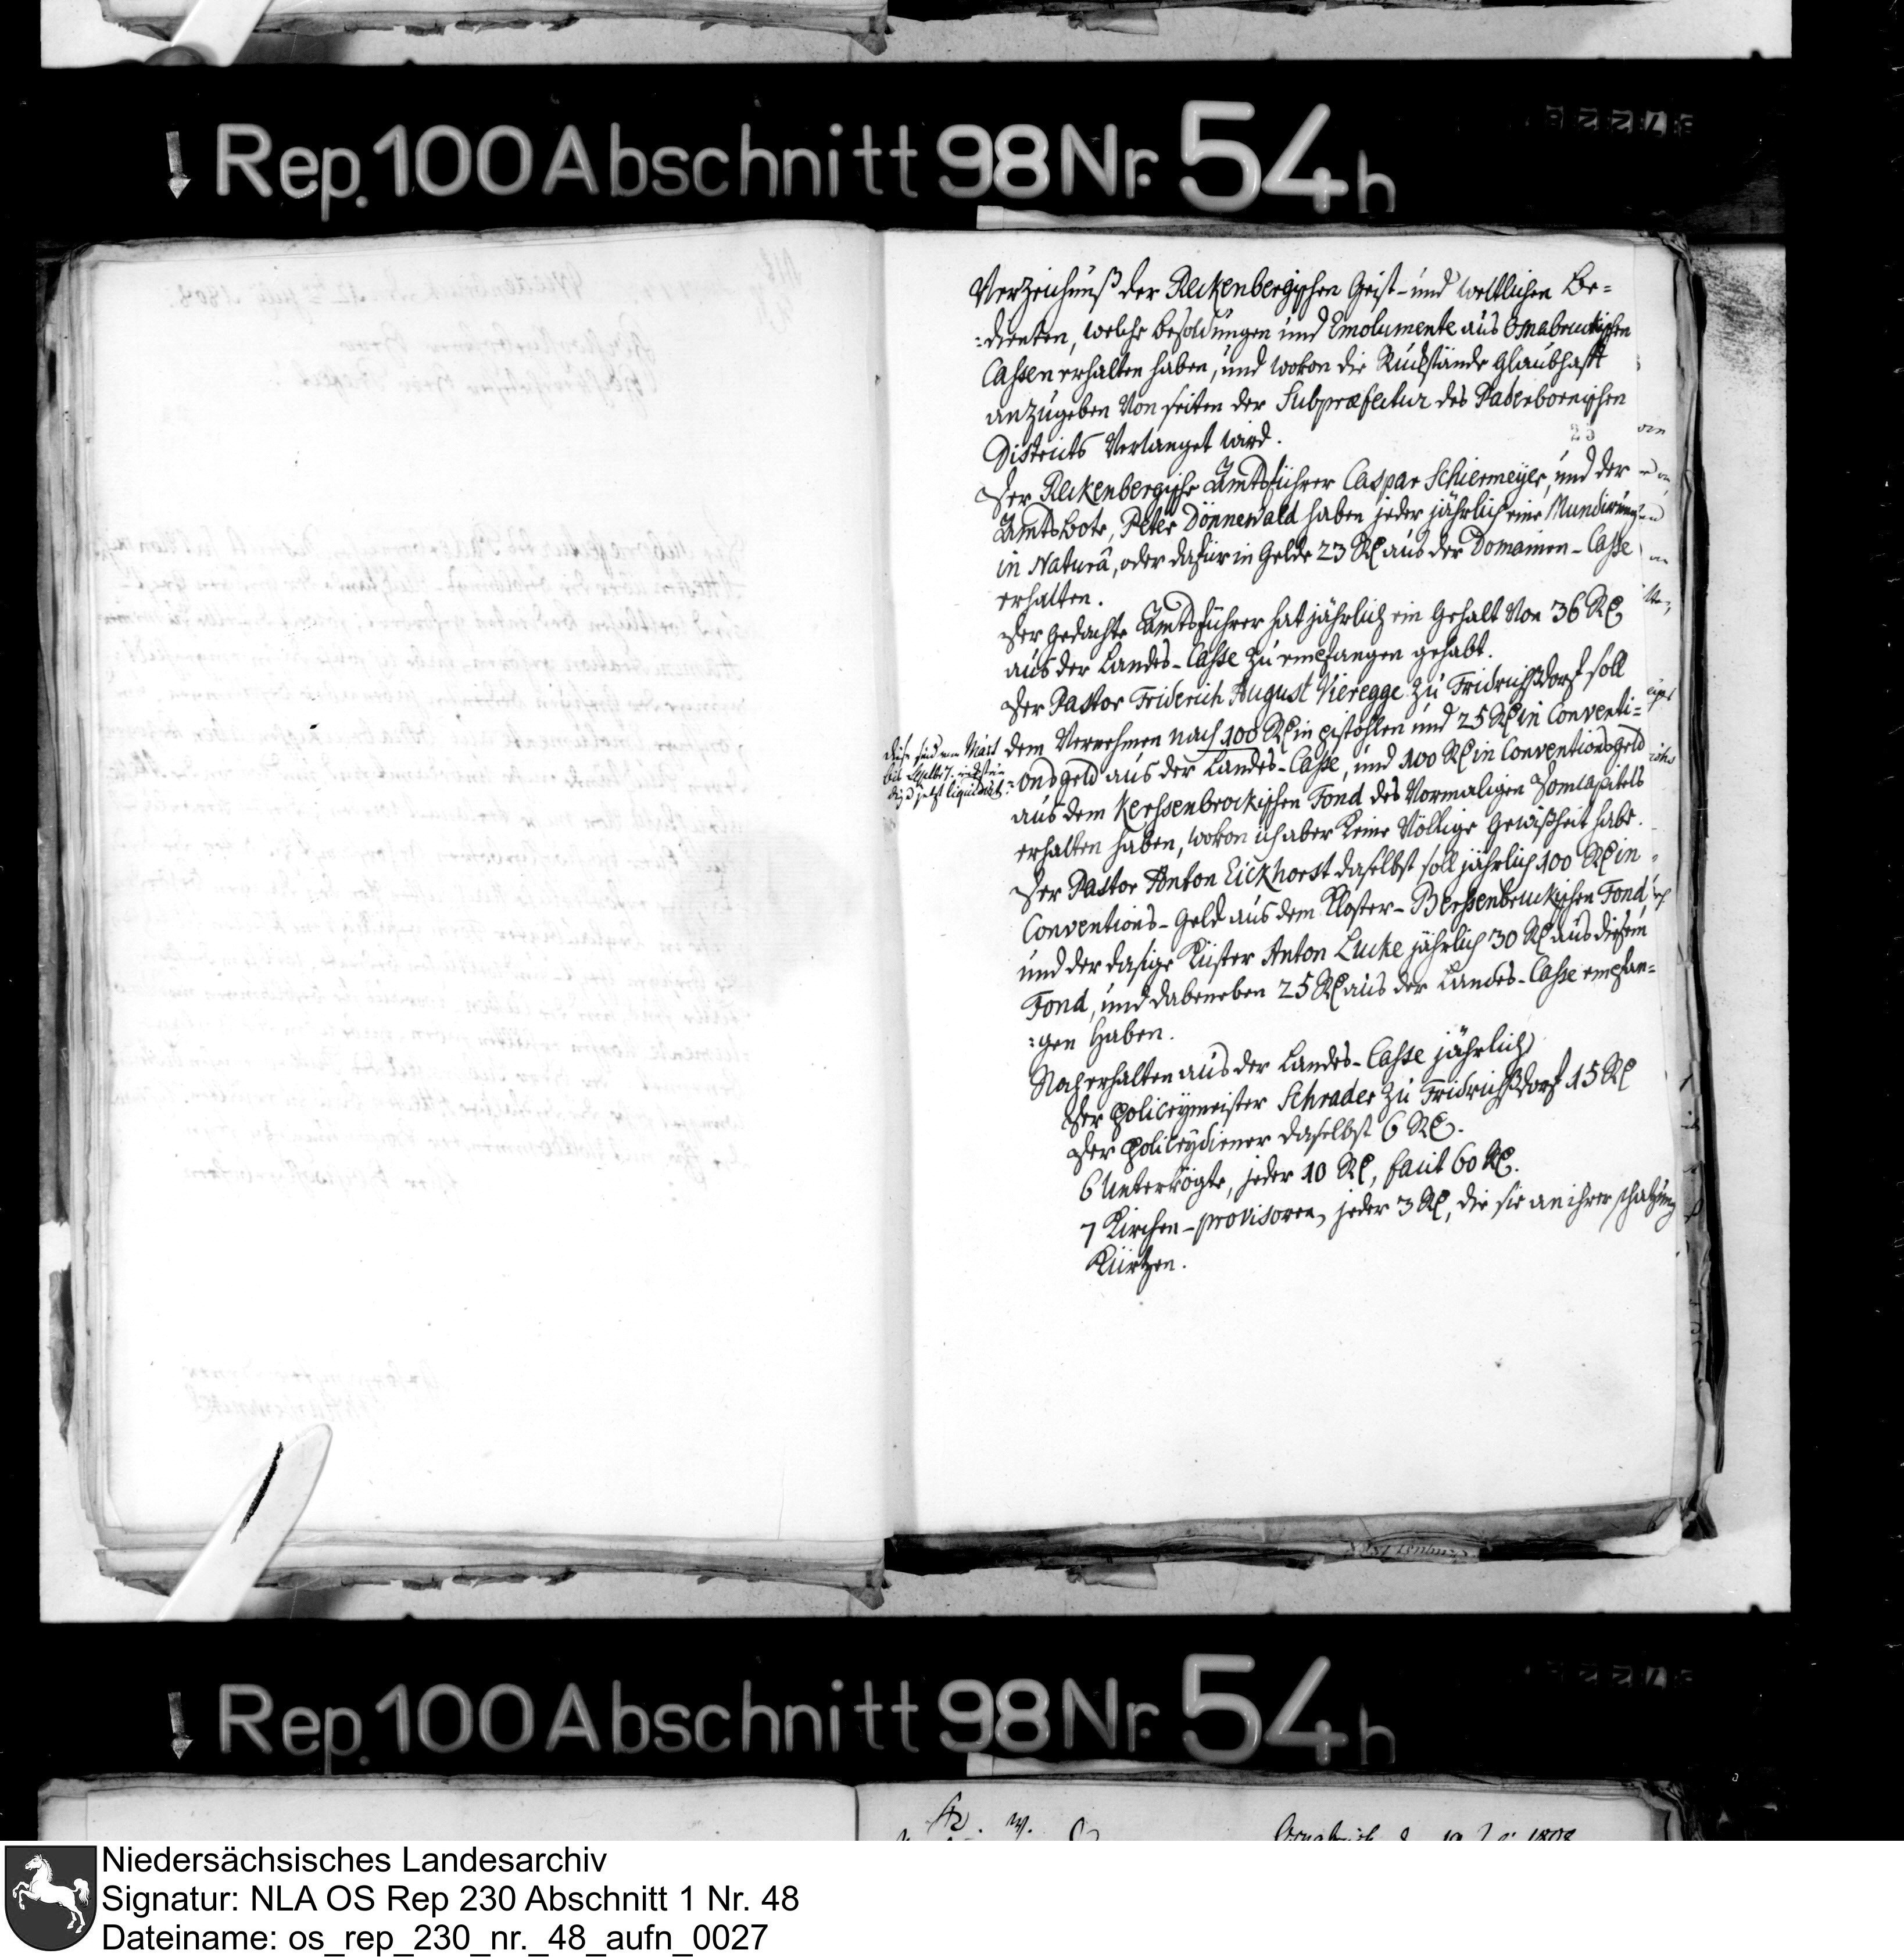 Rep. 100 Abschnitt 98 Nr. 54h
Verzeichnuß der Reckenbergischen Geist- und weltlichen Be=
:dienten, welche Besoldungen und Emolumente aus Osnabruckischen
Cassen erhalten haben, und wovon die Rückstände glaubhafft
anzugeben von seiten der Subpræfectur des Paderbornischen
Districts verlanget wird.
25
Der Reckenbergische Amtsführer Caspar Schiermeyer, und der
Amtsbote, Peter Dönnewald haben jeder jährlich eine Mundirung
in Naturâ, oder dafür in Gelde 23 Rt aus der Domainen-Casse
erhalten.
Der gedachte Amtsführer hat jährlich ein Gehalt von 36 Rt
aus der Landes-Casse zu empfangen gehabt.
Der Pastor Friderich August Vieregge zu Fridrichßdorf soll
dem Vernehmen nach 100 Rt in pistohlen und 25 Rt in Conventi=
:onsgeld aus der Landes-Casse, und 100 Rt in Conventionsgeld
diese sind von Mart
jetzt liquidirt
aus dem Kerssenbrockischen Fond des vormaligen Domcapitels
erhalten haben, wovon ich aber keine völlige Gewißheit habe.
Der Pastor Anton Eickhorst daselbst soll jährlich 100 Rt in
Conventions-Geld aus dem Kloster-Berssenbruckischen Fond,
und der dasige Küster Anton Lucke jährlich 30 Rt aus diesem
Fond, und dabeneben 25 Rt aus der Landes-Casse empfan=
:gen haben.
Noch erhalten aus der Landes-Casse jährlich
Der policeymeister Schrader zu Fridrichßdorf 15 Rt
Der policeydiener daselbst 6 Rt.
6 Untervögte, jeder 10 Rt, facit 60 Rt.
7 Kirchen-provisoren, jeder 3 Rt, die sie an ihrer schatzung
kürtzen.
Rep. 100 Abschnitt 98 Nr. 54h
Niedersächsisches Landesarchiv
Signatur: NLA OS Rep 230 Abschnitt 1 Nr. 48
Dateiname: os_rep_230_nr._48_aufn_0027